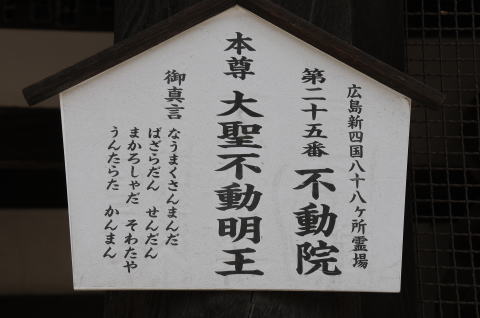 広島新四国八十八ヶ所霊場
第二十五番 不動院
本尊 大聖不動明王
御真言
なうまくさんまんだ
ばざらだん せんだん
まかろしゃだ そわたや
うんたらた かんまん